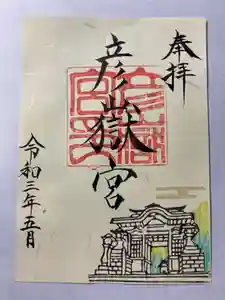 奉拝
彦嶽宮
令和三年五月